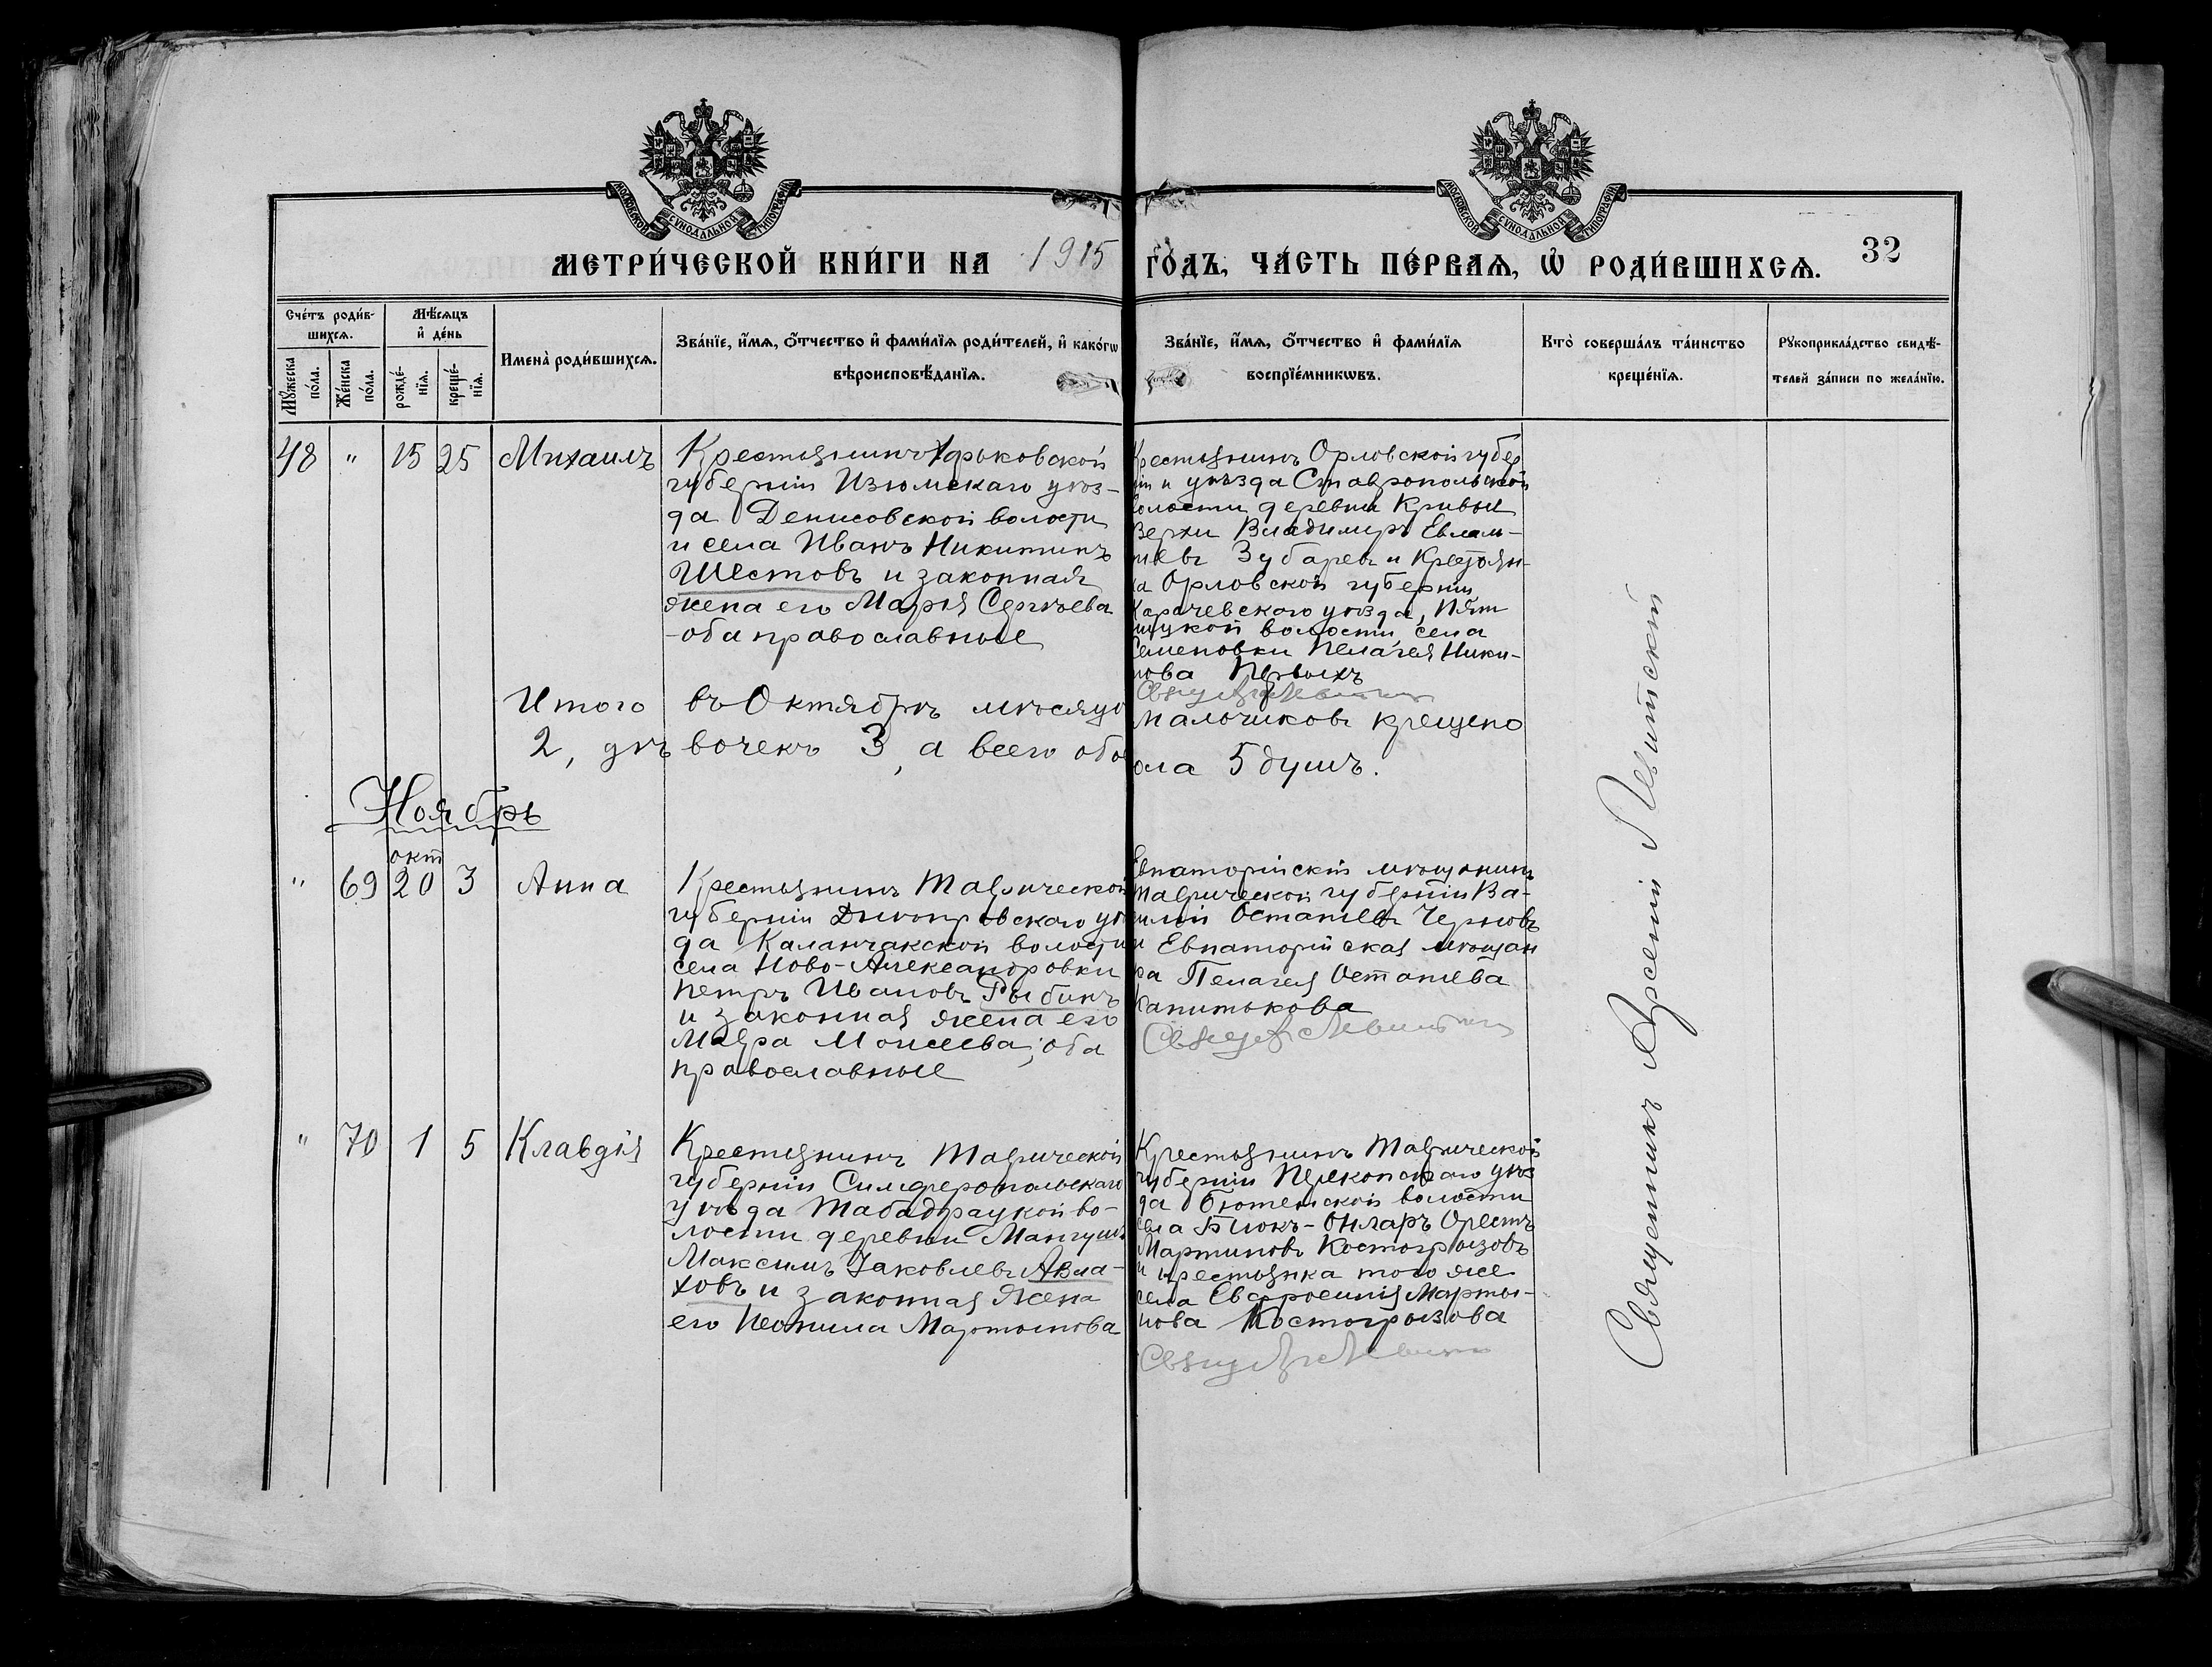 МОСКОВСКОЙ СѴНОДАЛЬНОЙ ТИПОГРАФІИ
МОСКОВСКОЙ СѴНОДАЛЬНОЙ ТИПОГРАФІИ
МЕТРИ́ЧЕСКОЙ КНИ́ГИ НА 1915 ГО́ДЪ, ЧА́СТЬ ПЕ́РВАѦ, Ѡ РОДИ́ВШИХСѦ. 32
Сче́тъ роди́в-
шихсѧ.
Мꙋ́жеска
по́ла.
Же́нска
по́ла.
Мѣ́сѧцъ
и҆ де́нь
рожде́-
нїѧ.
креще́-
нїѧ.
Имена̀ роди́вшихсѧ.
Зва́нїе, и҆́мѧ, ѻ҆́тчество и҆ фами́лїѧ роди́телей, и҆ како́гѡ
вѣроисповѣ́данїѧ.
Зва́нїе, и҆́мѧ, ѻ҆́тчество и҆ фами́лїѧ
воспрїе́мникѡвъ.
Кто̀ соверша́лъ та́инство
креще́нїѧ.
Рꙋкоприкла́дство свидѣ́-
телей за́писи по жела́нїю.
48 " 15 25 Михаилъ
Крестьянинъ Харьковской
губерніи Изюмскаго уѣз-
да Денисовской волости
и села Иванъ Никитинъ
Шестовъ и законная
жена его Марія Сергѣева
-оба православные
Крестьянинъ Орловской губер
ніи и уѣзда Ставропольской
волости деревни Кривыи
Верхи Владимиръ Евлам-
піевъ Зубаревъ и Крестьян-
ка Орловской губерніи
Карачевскаго уѣзда, Пят
ницкой волости села
Семеновки Пелагея Ники-
нова Первыхъ
Итого въ Октябрѣ мѣсяцѣ мальчиковъ крещено
2, дѣвочекъ 3, а всего обоего пола 5 душъ.
Ноябрь
окт
" 69 20 3 Анна
Крестьянинъ Таврической
губерніи Днѣпровскаго уѣз
да Каланчакской волости
села Ново-Александровки
Петръ Ивановъ Рыбинъ
и законная жена его
Мавра Моисеева; оба
православные
Евпаторійскій мѣщанинъ
Таврической губерніи Ва-
силій Остапіевъ Черновъ
и Евпаторійская мѣщан
ка Пелагея Остапіева
Капитькова
" 70 1 5 Клавдія
Крестьянинъ Таврической
губерніи Симферопольскаго
уѣзда Табадрацкой во-
лости деревни Мангушъ
Максимъ Іаковлевъ Авла-
ховъ и законная жена
его Неонила Мартынова
Крестьянинъ Таврической
губерніи Перекопскаго уѣз
да Бютенской волости
села Біюкъ-Онларъ Орестъ
Мартиновъ Костогрызовъ
и крестьянка того же
села Евфросинія Марты-
нова Костогрызова
Священникъ Арсеній Левитскій